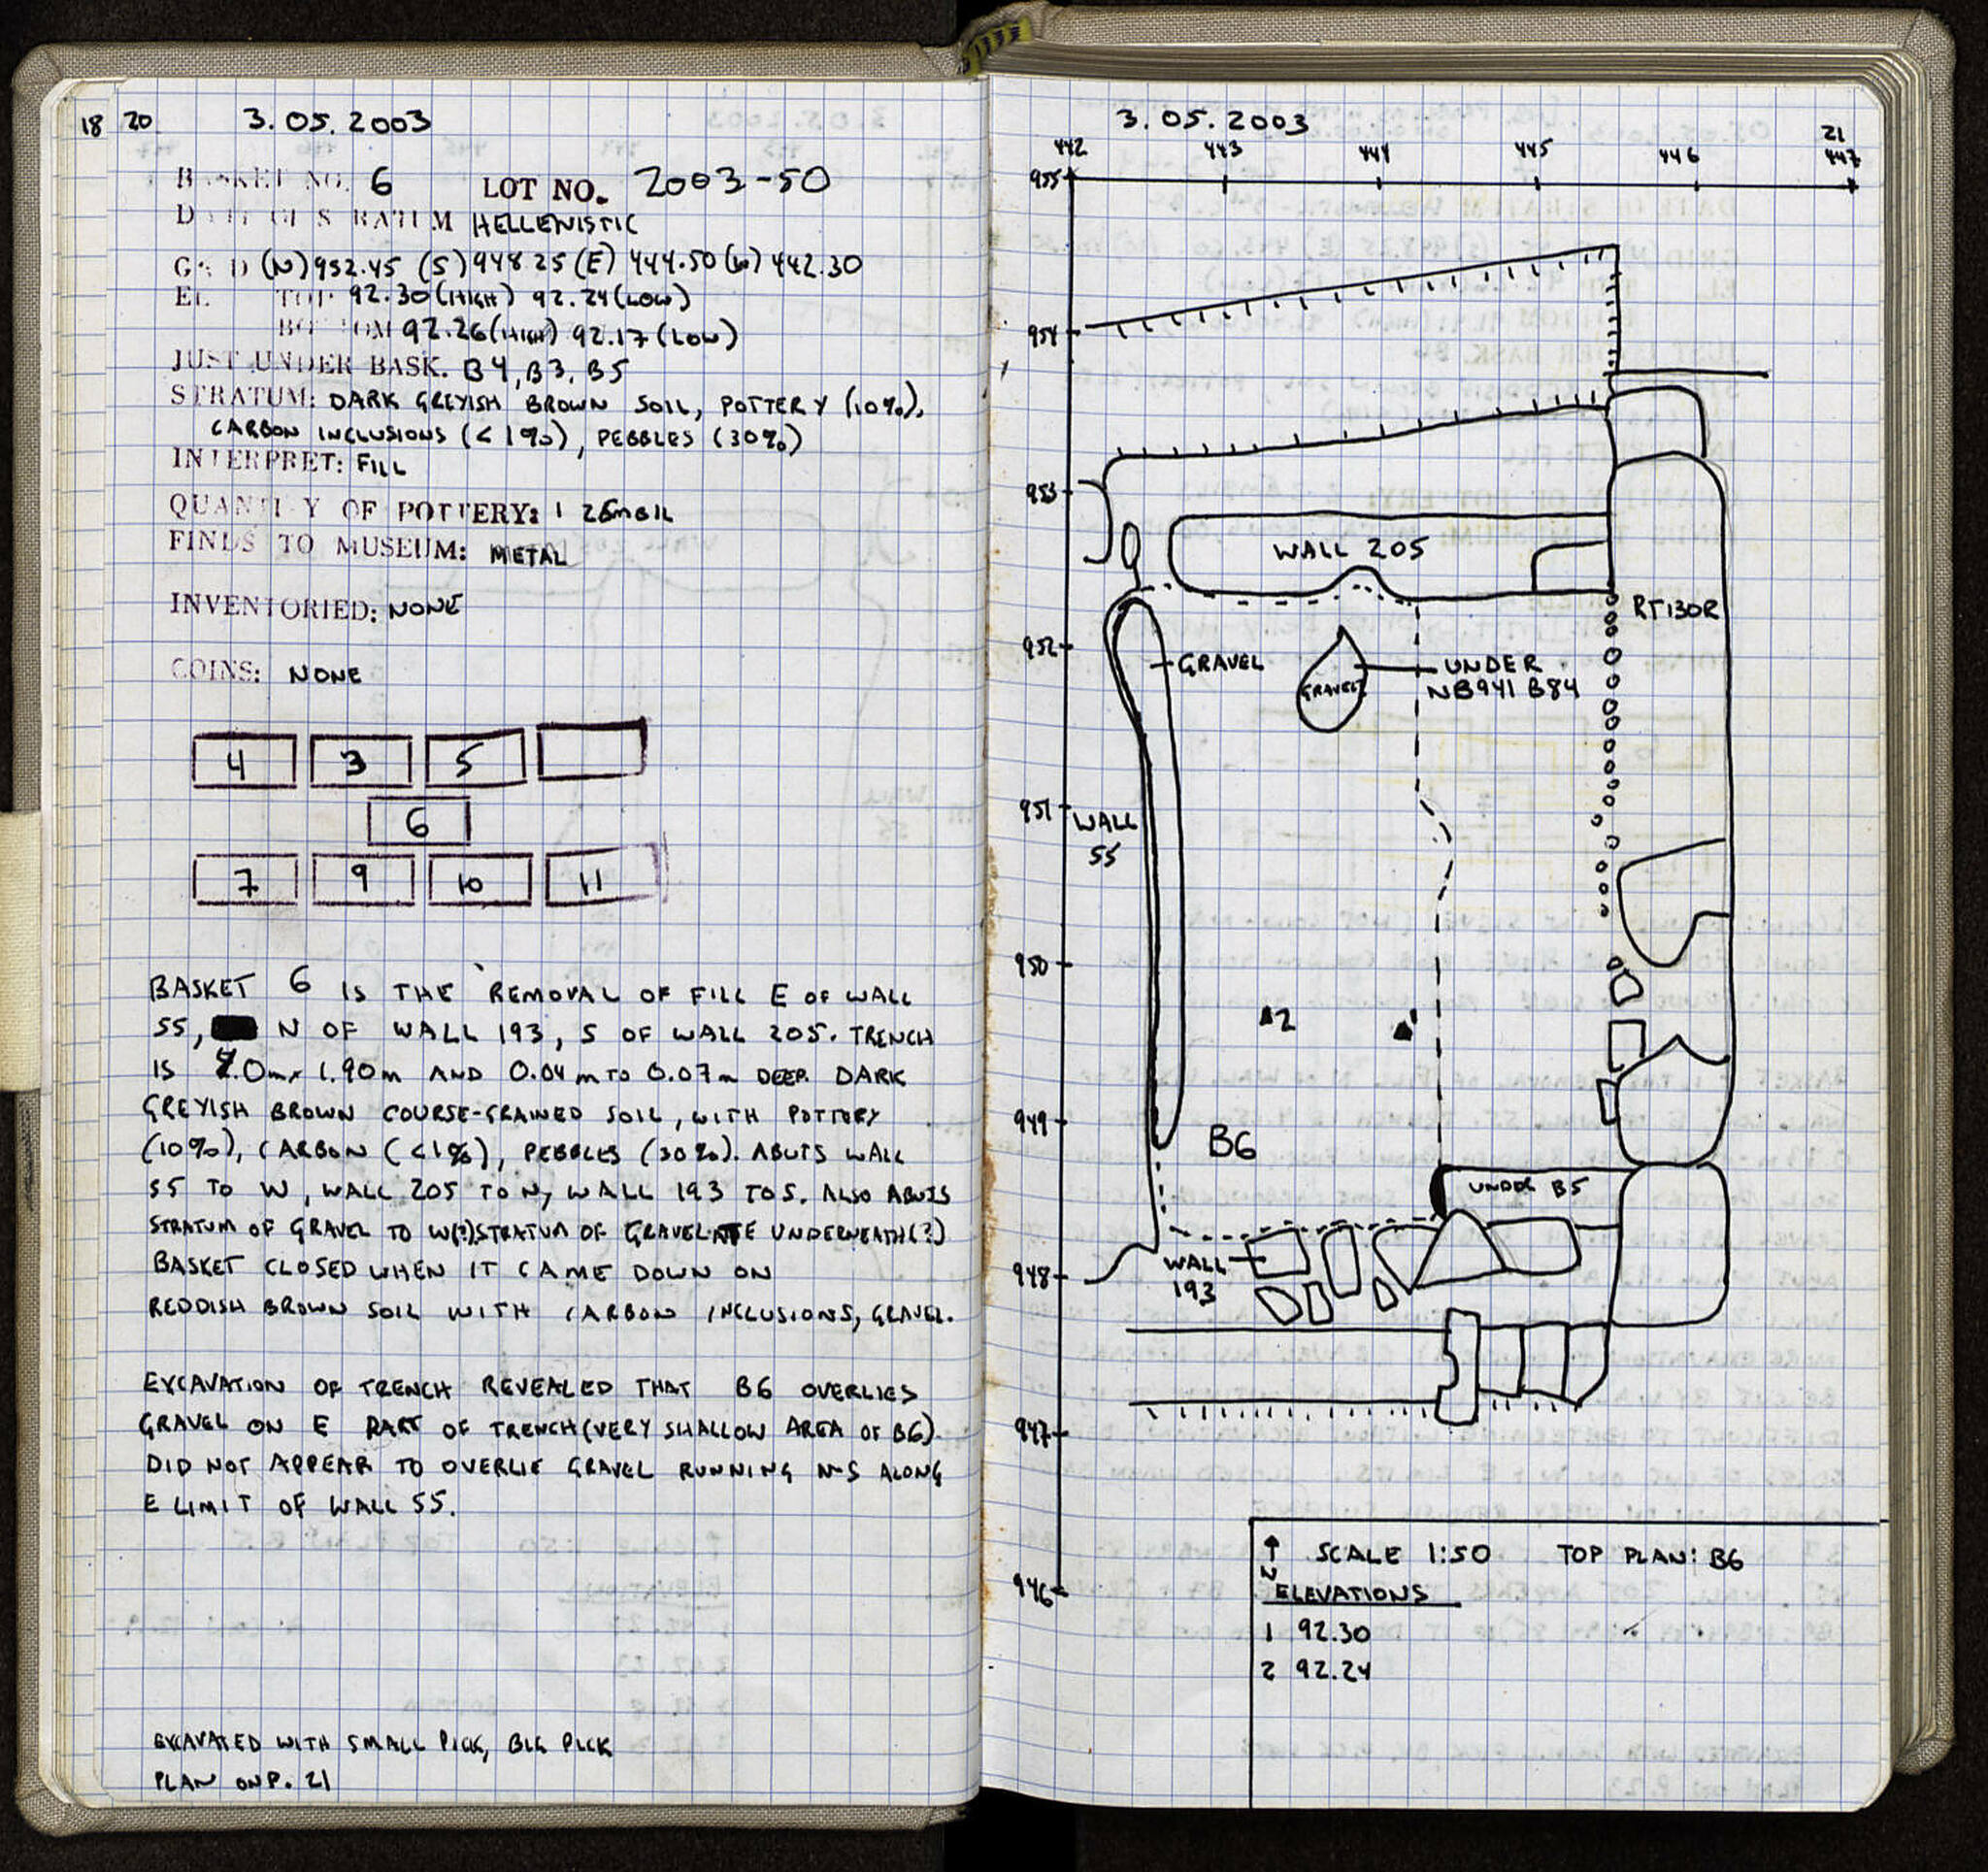 18 20 3.05.2003
BASKET NO. 6 LOT NO. 2003-50
DATE OF STRATUM HELLENISTIC
GRID (N)952.45 (S)948.25 (E) 444.50 (W) 442.30
EL TOP 92.30(HIGH) 92.24(LOW)
BOTTOM 92.26(HIGH) 92.17(LOW)
JUST UNDER BASK. B4, B3, B5
STRATUM: DARK GREYISH BROWN SOIL, POTTERY (10%),
CARBON INCLUSIONS (<1%), PEBBLES (30%)
INTERPRET: FILL
QUANTITY OF POTTERY: 1
FINDS TO MUSEUM: METAL
INVENTORIED: NONE
COINS: NONE
4 3 5
6
7 9 10 11
BASKET 6 IS THE REMOVAL OF FILL E OF WALL
55, N OF WALL 193, S OF WALL 205. TRENCH
IS 1.90m AND 0.04m TO 0.07m DEEP. DARK
GREYISH BROWN COURSE-GRAINED SOIL, WITH POTTERY
(10%), CARBON (<1%), PEBBLES (30%). ABUTS WALL
55 TO W, WALL 205 TO N, WALL 193 TO S. ALSO ABUTS
STRATUM OF GRAVEL TO W(?) STRATUM OF GRAVEL UNDERNEATH(?)
BASKET CLOSED WHEN IT CAME DOWN ON
REDDISH BROWN SOIL WITH CARBON INCLUSIONS, GRAVEL.
EXCAVATION OF TRENCH REVEALED THAT B6 OVERLIES
GRAVEL ON E PART OF TRENCH (VERY SHALLOW AREA OF B6).
DID NOT APPEAR TO OVERLIE GRAVEL RUNNING N-S ALONG
E LIMIT OF WALL 55.
EXCAVATED WITH SMALL PICK, BIG PICK
PLAN ON P. 21
3.05.2003 21
442 443 444 445 446 447
955
954
953
WALL 205
RT130R
952
GRAVEL
GRAVEL
UNDER
NB941 B84
951
WALL
55
950
2
949
B6
UNDER B5
WALL
193
948
947
946
N SCALE 1:50 TOP PLAN: B6
ELEVATIONS
1 92.30
2 92.24